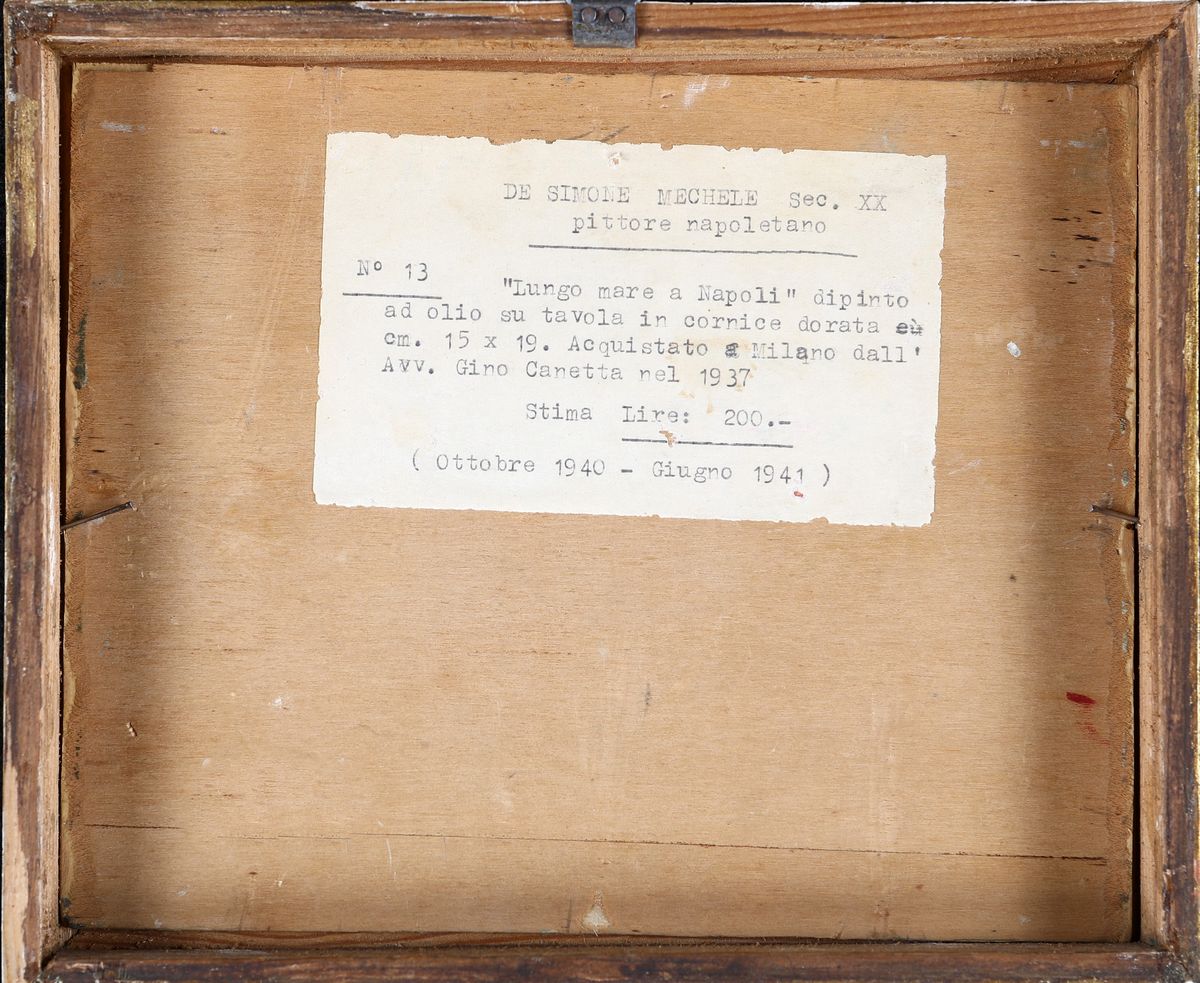 DE SIMONE MECHELE Sec. XX
pittore napoletano
Nº 13
"Lungo mare a Napoli" dipinto
ad olio su tavola in cornice dorata
cm. 15 x 19. Acquistato a Milano dall'
Avv. Gino Canetta nel 1937
Stima Lire: 200.-
( Ottobre 1940 - Giugno 1941 )